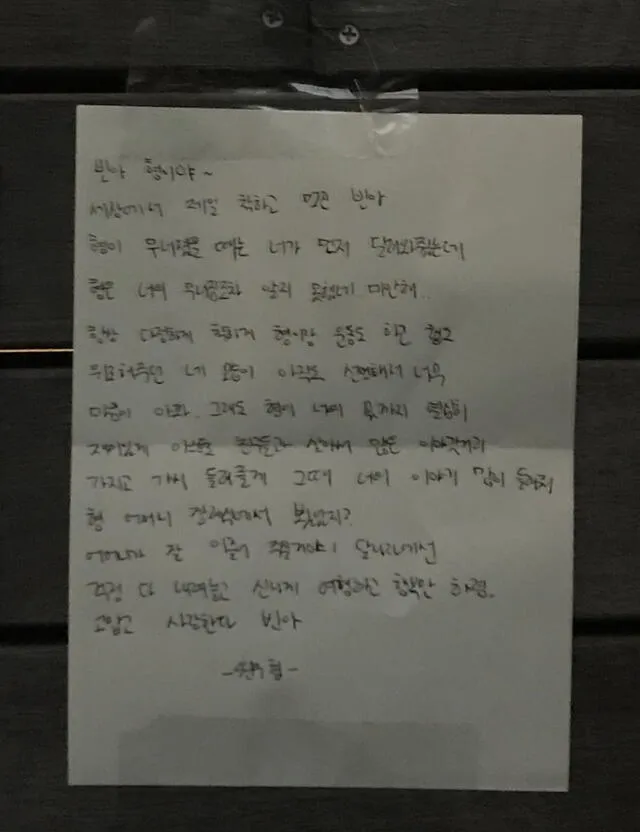 빈아 형이야~
세상에서 제일 착하고 멋진 빈아
형이 무너졌을 때는 너가 먼저 달려와줬는데
형은 너의 무너짐조차 알지 못했네 미안해..
항상 다정하게 착하게 형이랑 운동도 하곤 했고
위로해주던 네 모습이 아직도 선명해서 너무
마음이 아파. 그래도 형이 너의 몫까지 열심히
재미있게 아스트로 친구들과 살아서 많은 이야깃거리
가지고 가서 들려줄게 그때 너의 이야기 많이 들려줘
형 어머니 장례식에서 봤었지?
어머니가 잘 이끌어 주실거야! 달나라에선
걱정 다 내려놓고 신나게 여행하고 행복만 하렴.
고맙고 사랑한다 빈아